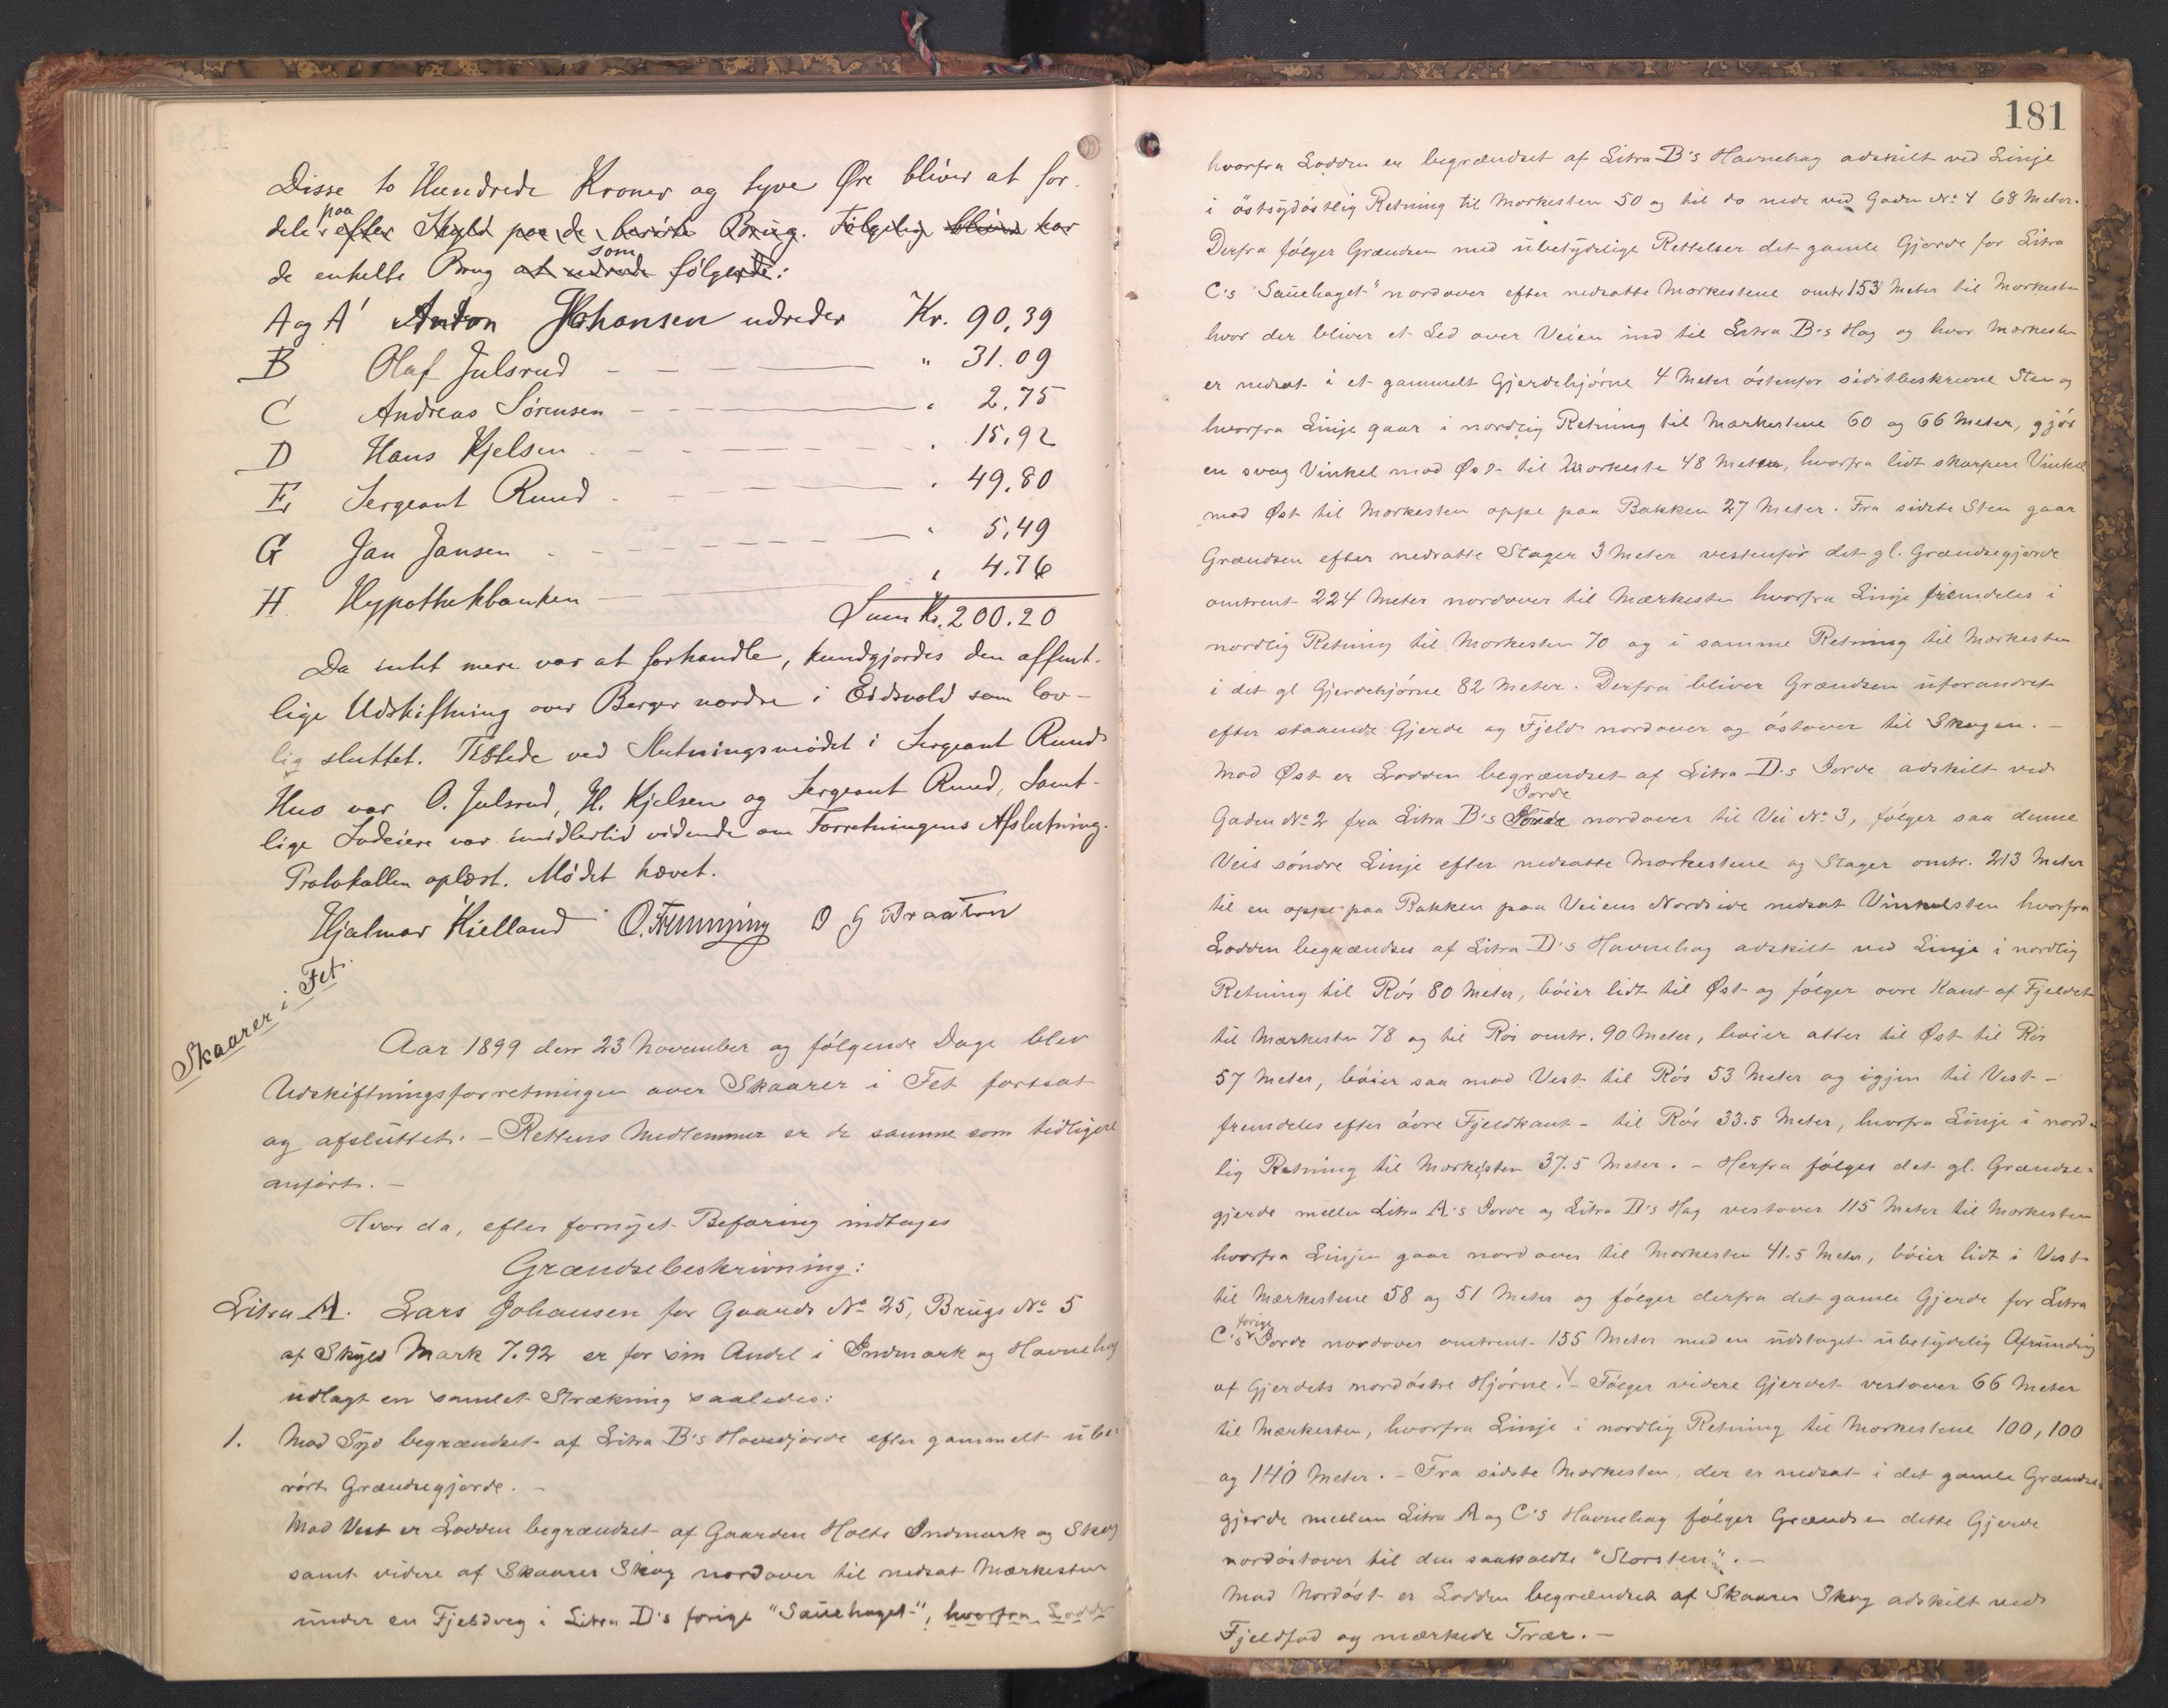 Disse to Hundrede Kroner og tyve Øre bliver at for-
deles paa efter Skyld paa de berørte Brug. Følgelig bliver har
de enkelte Brug at udrede som følgende:
A og A' Anton Johansen udreder Kr. 90,39
B Olaf Julsrud - - " 31.09
C Andreas Sørensen - - " 2,75
D Hans Kjelsen - - " 15,92
E Sergeant Ruud - - " 49,80
G Jan Jansen - - " 5,49
H Hypothekbanken - - " 4.76
Sum Kr. 200.20
Da intet mere var at forhandle, kundgjordes den offent-
lige Udskiftning over Berger nordre i Eidsvold som lov-
lig sluttet. Tilstede ved Slutningsmødet i Sergeant Ruuds
Hus var O. Julsrud, H. Kjelsen og Sergeant Ruud, Samt-
lige Lodeiere var imidlertid vidende om Forretningens Afslutning.
Protokollen oplæst. Mødet hævet.
Hjalmar Kielland O. Fenning O G Braaten
Skaarer i Fet.
Aar 1899 den 23 November og følgende Dage blev
Udskiftningsforretningen over Skaarer i Fet fortsat
og afsluttet. - Rettens Medlemmer er de samme som tidligere
anført. -
Hvor da, efter fornyet Befaring indtages
Grændsebeskrivning:
Litra A. Lars Johansen for Gaards No 25, Brugs No 5
af Skyld Mark 7.92 er for sin Andel i Indmark og Havnehag
udlagt en samlet Strækning saaledes:
1. Mod Syd begrændset af Litra B's Hovedjorde efter gammelt ube-
rørt Grændsegjærde. -
Mod Vest er Lodden begrændset af Gaarden Holts Indmark og Skog
samt videre af Skaarer Skog nordover til nedsat Mærkesten
under en Fjeldveg i Litra D's forige "Sauehaget", hvorfra Lodden
181
hvorfra Lodden er begrændset af Litra B's Havnehag adskilt ved Linje
i østsydøstlig Retning til Mærkesten 50 og til do nede ved Gaden No 4 68 Meter.
Derfra følger Grændsen med ubetydelige Rettelser det gamle Gjærde for Litra
C's "Sauehaget" nordover efter nedsatte Mærkestene omtr 153 Meter til Mærkesten
hvor der bliver et Led over Veien ind til Litra B's Hag og hvor Mærkesten
er nedsat i et gammelt Gjerdehjørne 4 Meter østenfor sidstbeskrevne Sten og
hvorfra Linje gaar i nordlig Retning til Mærkestene 60 og 66 Meter, gjør
en svag Vinkel mod Øst til Mærkeste 48 Meter, hvorfra lidt skarpere Vinkel
mod Øst til Mærkesten oppe paa Bakken 27 Meter. Fra sidste Sten gaar
Grændsen efter nedsatte Stager 3 Meter vestenfor det gl. Grændsegjerde
omtrent 224 Meter nordover til Mærkesten hvorfra Linje fremdeles i
nordlig Retning til Mærkesten 70 og i samme Retning til Mærkesten
i det gl Gjerdehjørne 82 Meter. Derfra bliver Grændsen uforandret
efter staaende Gjerde og Fjeld nordover og østover til Skogen. -
Mod Øst er Lodden begrændset af Litra D's Jorde adskilt ved
Gaden No 2 fra Litra B's Jorde nordover til Vei No 3, følger saa denne
Veis søndre Linje efter nedsatte Mærkestene og Stager omtr. 213 Meter
til en oppe paa Bakken paa Veiens Nordside nedsat Vinkelsten hvorfra
Lodden begrændses af Litra D's Havnehag adskilt ved Linje i nordlig
Retning til Røs 80 Meter, bøier lidt til Øst og følger øvre Kant af Fjeldet
til Mærkesten 78 og til Røs omtr. 90 Meter, bøier atter til Øst til Røs
57 Meter, bøier saa mod Vest til Røs 53 Meter og igjen til Vest -
fremdeles efter øvre Fjeldkant - til Røs 33.5 Meter, hvorfra Linje i nord-
lig Retning til Mærkesten 37.5 Meter. - Herfra følges det gl. Grændse-
gjerde mellem Litra A's Jorde og Litra D's Hag vestover 115 Meter til Mærkesten
hvorfra Linjen gaar nordover til Mærkesten 41.5 Meter, bøier lidt i Vest
til Mærkestene 58 og 51 Meter og følger derfra det gamle Gjerde for Litra
C's forige Jorde nordover omtrent 155 Meter med en udstaget ubetydelig Afrunding
af Gjerdets nordøstre Hjørne. - Følger videre Gjerdet vestover 66 Meter
til Mærkesten, hvorfra Linje i nordlig Retning til Mærkestene 100, 100
og 140 Meter. - Fra sidste Mærkesten, der er nedsat i det gamle Grændse-
gjerde mellem Litra A og C's Havnehag følger Grændsen dette Gjerde
nordøstover til den saakaldte "Storsten". -
Mod Nordøst er Lodden begrændset af Skaarer Skog adskilt ved
Fjeldfod og mærkede Trær. -